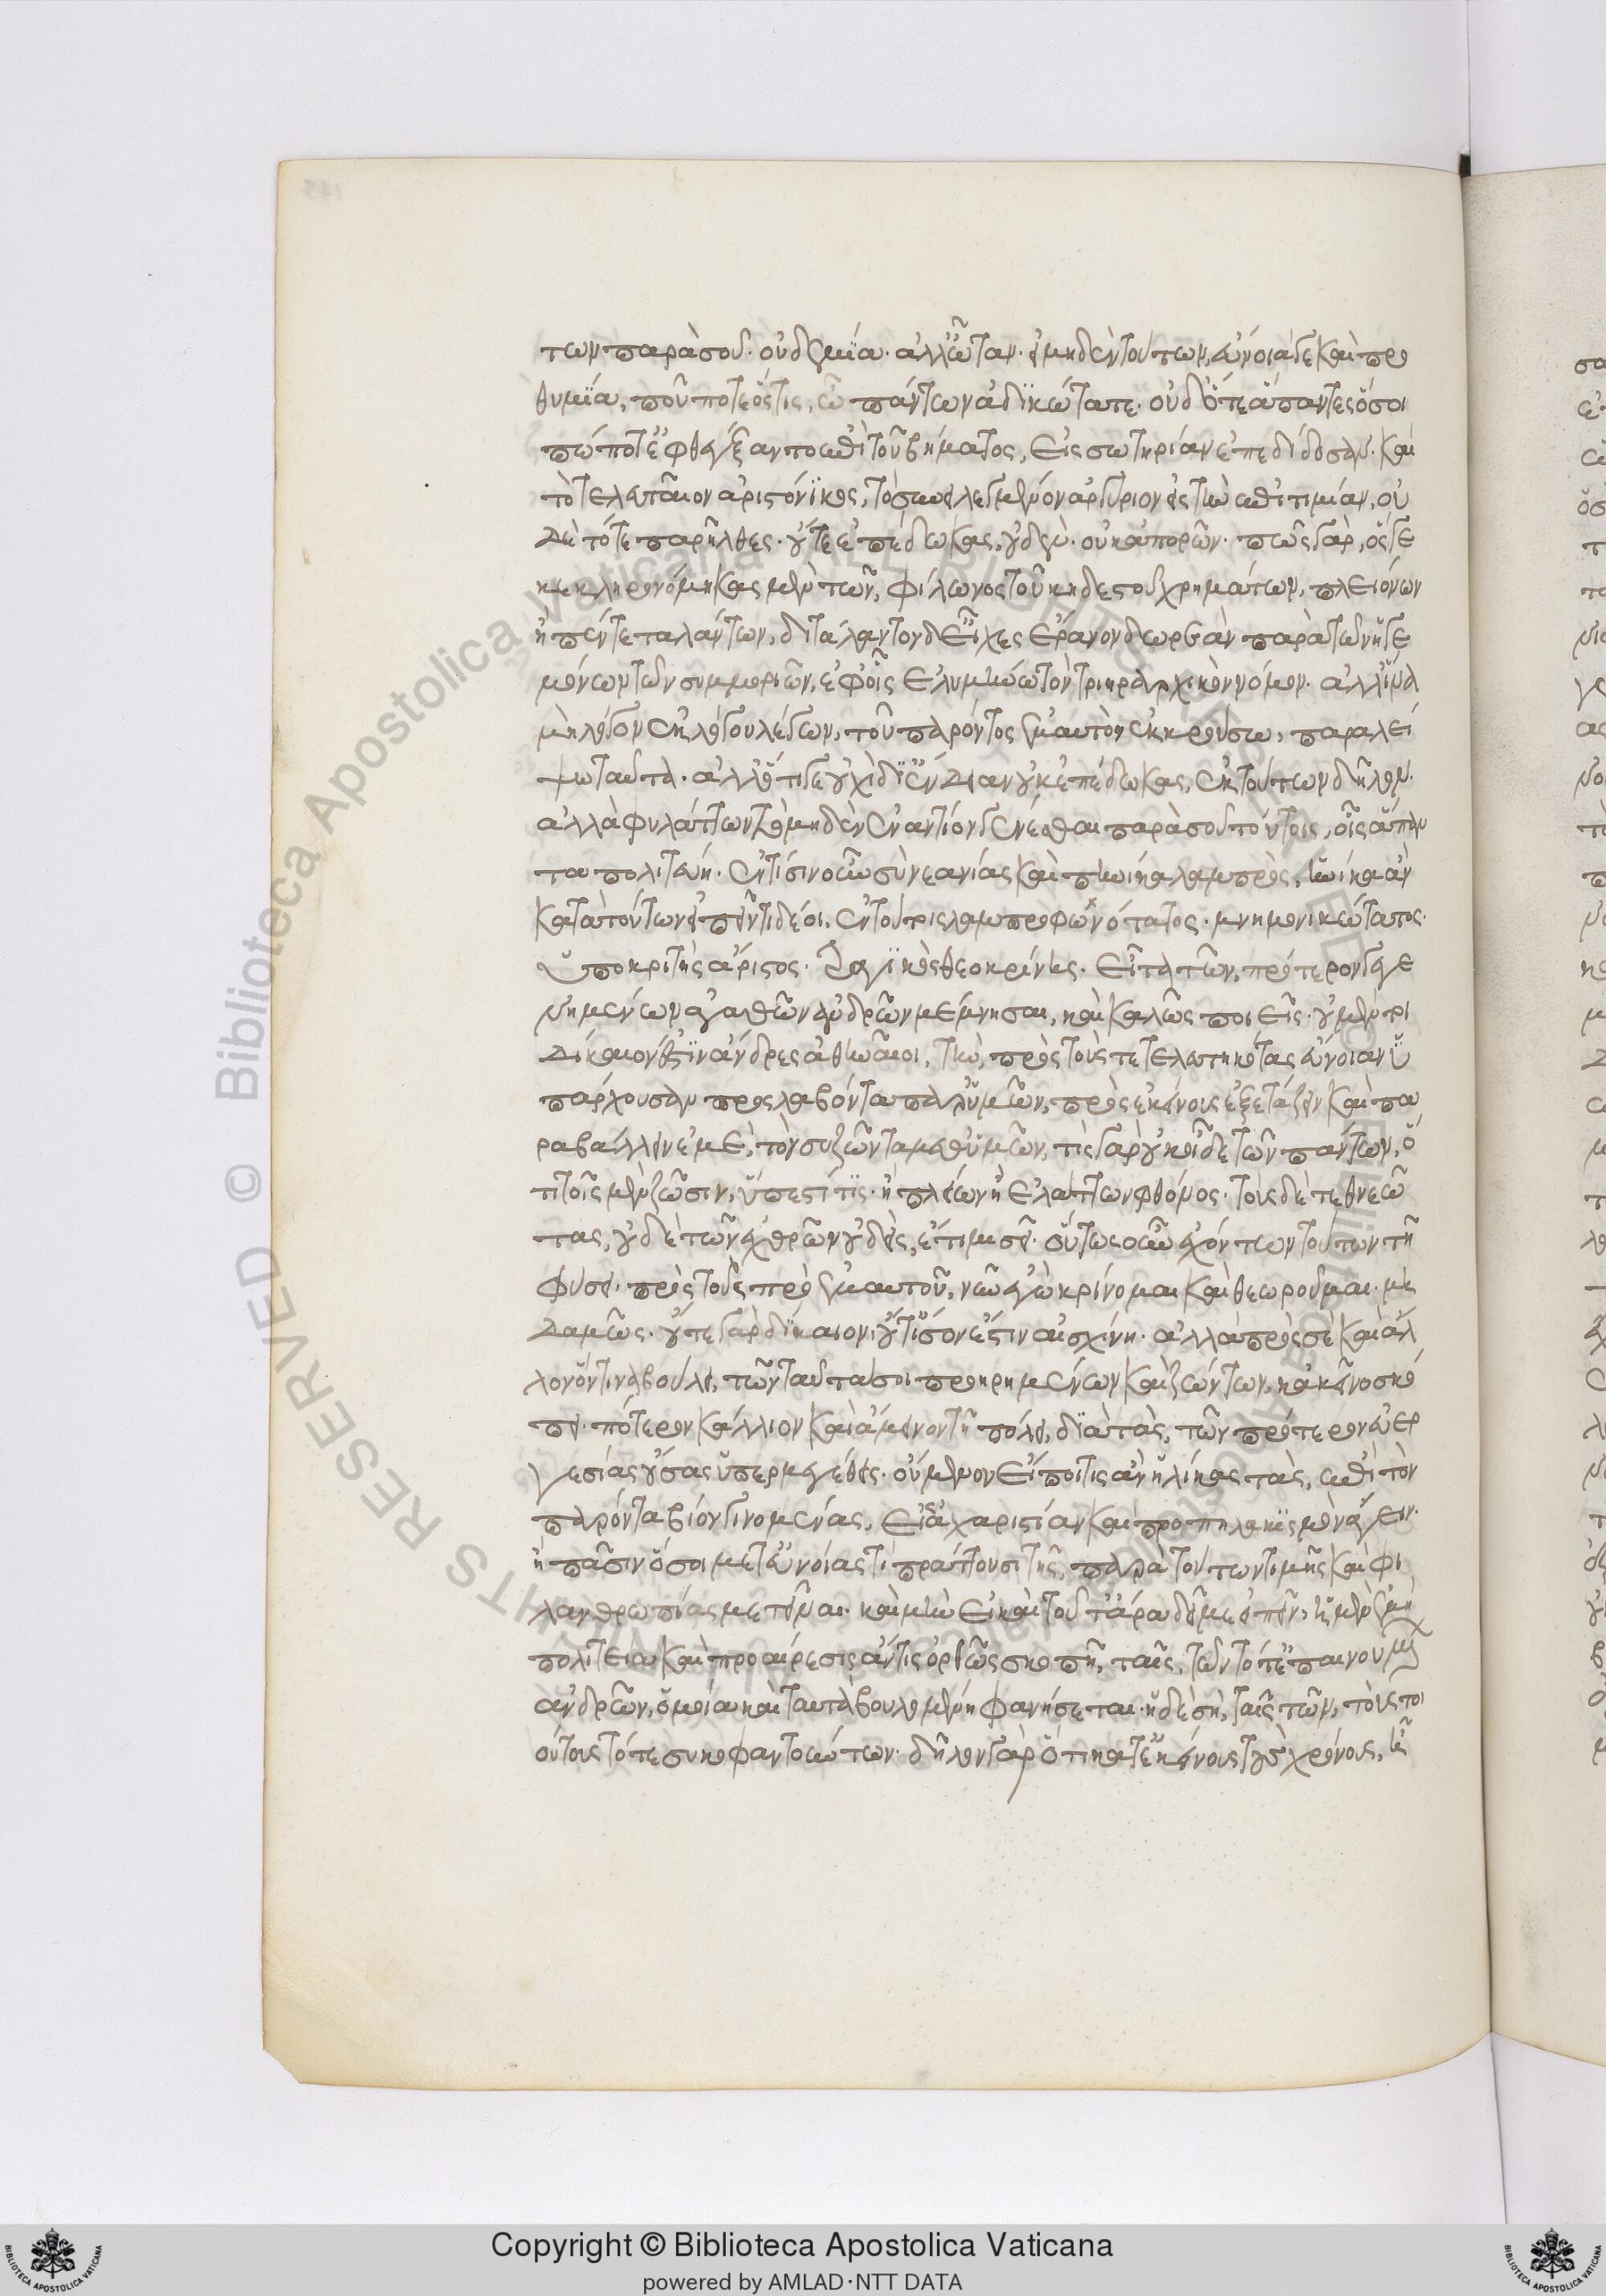 των παρὰ σοῦ. οὐδεμία. ἀλλ' ὦ τᾶν. εἰ μηδὲν τούτων, εὔνοιά γε καὶ προ
θυμία, ποῦ πότε ὅστις, ὦ πάντων ἀδικώτατε. οὐδ' ὅτε ἅπαντες ὅσοι
πώποτ' ἐφθέγξαντο ἐπὶ τοῦ βήματος, εἰς σωτηρίαν ἐπεδίδοσαν. καὶ
τὸ τελευταῖον ἀριστόνικος, τὸ συνειλεγμένον ἀργύριον εἰς τὴν ἐπιτιμίαν, οὐ
δὲ τότε παρῆλθες. οὔτε ἐπέδωκας, οὐδέν. οὐκ ἀπορῶν. πῶς γάρ, ὅς γε
κεκληρονόμηκας μὲν τῶν, φίλωνος τοῦ κηδεστοῦ χρημάτων, πλειόνων
ἢ πέντε ταλάντων, διτάλαντον δ' εἶχες ἔρανον δωρεὰν παρὰ τῶν ἡγε
μόνων τῶν συμμοριῶν, ἐφ' οἷς ἐλυμήνω τὸν τριηραρχικὸν νόμον. ἀλλ' ἵνα
μὴ λόγον ἐκ λόγου λέγων, τοῦ παρόντος ἐμαυτὸν ἐκκρούσω, παραλεί
ψω ταῦτα. ἀλλ' ὅτι γε οὐχὶ δι' ἔνδειαν οὐκ ἐπέδωκας, ἐκ τούτων δῆλον.
ἀλλὰ φυλάττων τὸ μηδὲν ἐναντίον γενέσθαι παρὰ σοῦ τούτοις, οἷς ἅπαν
τα πολιτεύῃ. ἐν τίσιν οὖν σὺ νεανίας καὶ πηνίκα λαμπρὸς, ἡνίκα ἂν
κατὰ τούτων εἰπεῖν τι δέοι, ἐν τούτοις λαμπροφωνότατος. μνημονικώτατος.
ὑποκριτὴς ἄριστος. τραγικὸς θεοκρίνης. εἶτα τῶν, πρότερον γεγε
νημένων ἀγαθῶν ἀνδρῶν μέμνησαι, καὶ καλῶς ποιεῖς. οὐ μέντοι
δίκαιόν ἐστιν ἄνδρες ἀθηναῖοι, τὴν, πρὸς τοὺς τετελευτηκότας εὔνοιαν ὑ
πάρχουσαν προσλαβόντα παρ' ὑμῶν, πρὸς ἐκείνους ἐξετάζειν καὶ πα
ραβάλλειν ἐμὲ, τὸν συζῶντα μεθ' ὑμῶν, τίς γὰρ οὐκ οἶδε τῶν πάντων, ὅ
τι τοῖς μὲν ζῶσιν, ὕπεστί τις. ἢ πλείων ἢ ἐλάττων φθόνος. τοὺς δὲ τεθνεῶ
τας, οὐδὲ τῶν ἐχθρῶν οὐδεὶς, ἔτι μισεῖ. οὕτως οὖν ἐχόντων τούτων τῇ
φύσει. πρὸς τοὺς πρὸ ἐμαυτοῦ, νῦν ἐγὼ κρίνομαι καὶ θεωροῦμαι. μη
δαμῶς. οὔτε γὰρ δίκαιον, οὔτ' ἴσον ἐστιν αἰσχίνη. ἀλλὰ πρὸς σὲ καὶ ἄλ
λον ὅντινα βούλει, τῶν ταῦτά σοι προῃρημένων καὶ ζώντων, κἀκεῖνο σκό
πει. πότερον κάλλιον καὶ ἄμεινον τῇ πόλει, διὰ τὰς, τῶν πρότερον εὐερ
γεσίας οὔσας ὑπερμεγέθεις. οὐ μὲν οὖν εἴποι τις ἂν ἡλίκας τὰς, ἐπὶ τὸν
παρόντα βίον γινομένας, εἰς ἀχαριστίαν καὶ προπηλακισμὸν ἄγειν.
ἢ πᾶσιν ὅσοι μετ' εὐνοίας τὶ πράττουσι τῆς, παρὰ τούτων τιμῆς καὶ φι
λανθρωπίας μετεῖναι. καὶ μὴν εἰ καὶ τοῦτ' ἄρα δεῖ με εἰπεῖν, ἡ μὲν ἐμὴ
πολιτεία καὶ προαίρεσις ἄν τις ὀρθῶς σκοπῇ, ταῖς, τῶν τότ' ἐπαινουμένων
ἀνδρῶν, ὁμοία καὶ ταυτὰ βουλομένη φανήσεται. ἡ δὲ σὴ, ταῖς τῶν, τοὺς τοι
ούτους τότε συκοφαντούντων. δῆλον γὰρ ὅτι κατ' ἐκείνους τοὺς χρόνους, ἦ